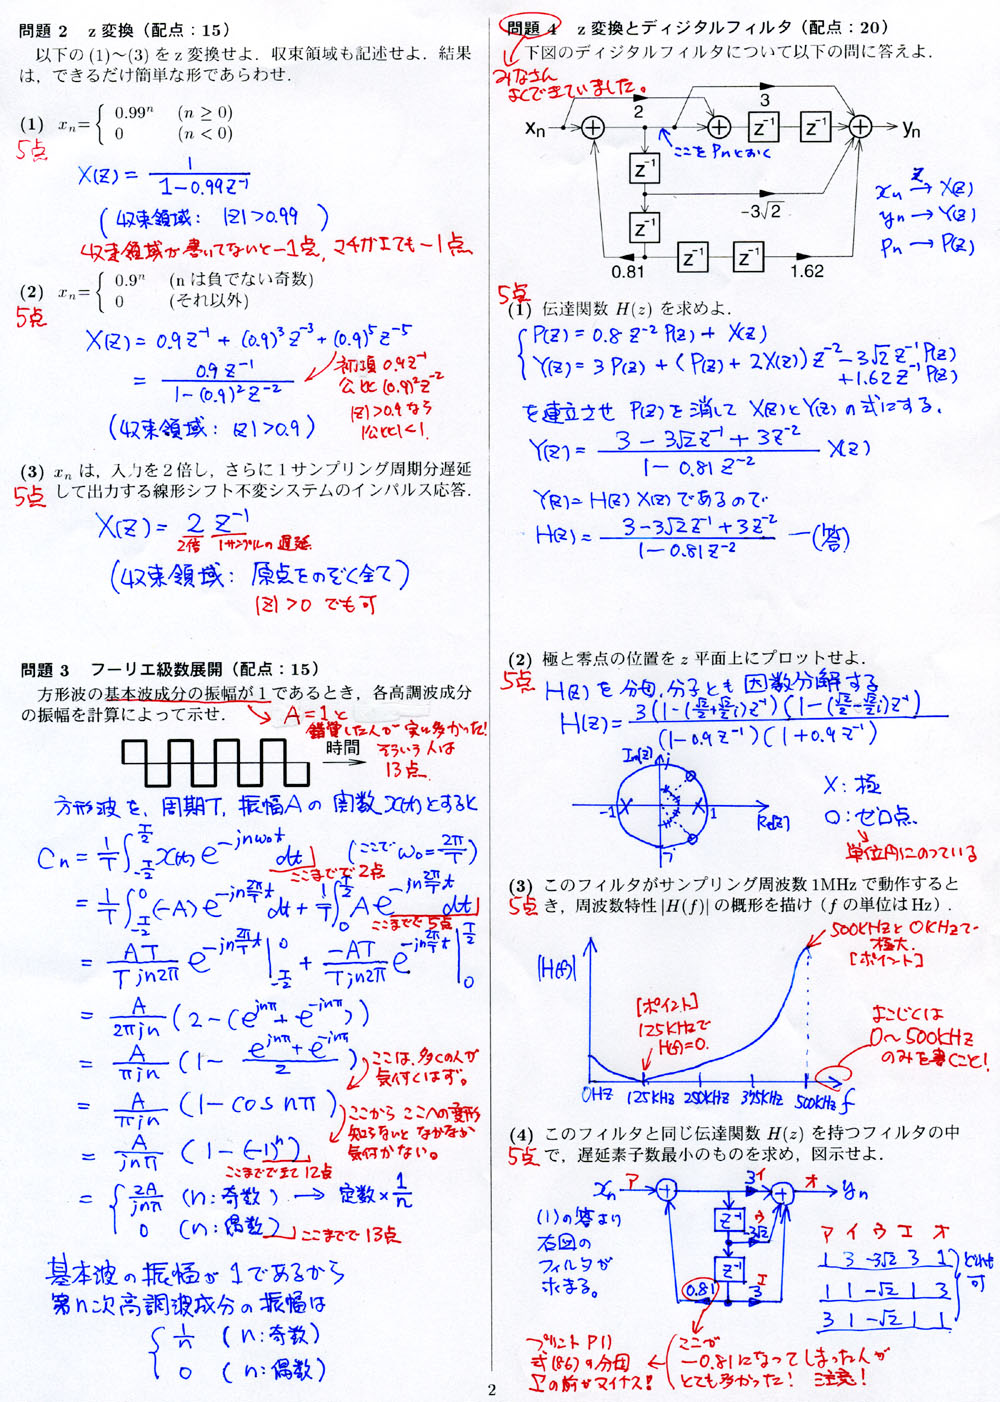 問題 2　z 変換（配点：15）
以下の (1)～(3) を z 変換せよ．収束領域も記述せよ．結果
は，できるだけ簡単な形であらわせ．
(1) xₙ= { 0.99ⁿ (n ≥ 0)
0 (n < 0)
5点
X(z) = 1 / (1-0.99z⁻¹)
(収束領域: |z|>0.99)
収束領域が書いてないと-1点, マチガエても-1点
(2) xₙ= { 0.9ⁿ (n は負でない奇数)
0 (それ以外)
5点
X(z) = 0.9z⁻¹ + (0.9)³z⁻³ + (0.9)⁵z⁻⁵
= 0.9z⁻¹ / (1-(0.9)²z⁻²)
初項 0.9z⁻¹
公比 (0.9)²z⁻²
|z|>0.9なら
|公比|<1.
(収束領域: |z|>0.9)
(3) xₙ は，入力を 2 倍し，さらに 1 サンプリング周期分遅延
して出力する線形シフト不変システムのインパルス応答．
5点
X(z) = 2 z⁻¹
2倍 1サンプルの遅延
(収束領域: 原点をのぞく全て)
|z|>0 でも可
問題 3　フーリエ級数展開（配点：15）
方形波の基本波成分の振幅が 1 であるとき，各高調波成分
の振幅を計算によって示せ．
A=1と
錯覚した人が実に多かった!
そういう人は
13点
時間
方形波を, 周期T, 振幅Aの関数x(t)とすると
Cn = 1/T ∫_{-T/2}^{T/2} x(t) e^{-jnω₀t} dt (ここで ω₀=2π/T)
ここまでで2点
= 1/T ∫_{-T/2}^{0} (-A) e^{-jn(2π/T)t} dt + 1/T ∫_{0}^{T/2} A e^{-jn(2π/T)t} dt
ここまでで5点
= AT/(Tjn2π) e^{-jn(2π/T)t} |_{-T/2}^{0} + -AT/(Tjn2π) e^{-jn(2π/T)t} |_{0}^{T/2}
= A/(2πjn) (2-(e^{jnπ}+e^{-jnπ}))
= A/(πjn) (1 - (e^{jnπ}+e^{-jnπ})/2)
ここは, 多くの人が
気付くはず。
= A/(πjn) (1-cos nπ)
ここから ここへの変形
知らないと なかなか
気付かない。
= A/(jnπ) (1-(-1)ⁿ)
ここまでできて12点
= { 2A/(jnπ) (n:奇数) → 定数×1/n
0 (n:偶数)
ここまでで13点
基本波の振幅が1であるから
第n次高調波成分の振幅は
{ 1/n (n:奇数)
0 (n:偶数)
問題 4　z 変換とディジタルフィルタ（配点：20）
下図のディジタルフィルタについて以下の問に答えよ．
みなさん
よくできていました。
2 3
xₙ z⁻¹ z⁻¹ yₙ
ここをPnとおく
z⁻¹
-3√2
z⁻¹
z⁻¹ z⁻¹
0.81 1.62
xn →z X(z)
yn → Y(z)
Pn → P(z)
5点
(1) 伝達関数 H(z) を求めよ．
{ P(z) = 0.8 z⁻² P(z) + X(z)
Y(z) = 3P(z) + (P(z) + 2X(z)) z⁻² - 3√2 z⁻¹ P(z)
+1.62 z⁻¹ P(z)
を連立させ P(z)を消して X(z)とY(z)の式にする.
Y(z) = (3 - 3√2z⁻¹ + 3z⁻²) / (1 - 0.81z⁻²) X(z)
Y(z) = H(z)X(z) であるので
H(z) = (3-3√2z⁻¹+3z⁻²) / (1-0.81z⁻²) —(答)
(2) 極と零点の位置を z 平面上にプロットせよ．
5点
H(z)を分母,分子とも因数分解する
H(z) = 3(1-(√2/2+√2/2 i)z⁻¹)(1-(√2/2-√2/2 i)z⁻¹) / (1-0.9z⁻¹)(1+0.9z⁻¹)
Im(z) j
-1 1 Re(z)
X:極
O:ゼロ点
単位円にのっている
(3) このフィルタがサンプリング周波数 1MHz で動作すると
き，周波数特性 |H(f)| の概形を描け（f の単位は Hz）．
5点
500KHzと0KHzで
極大.
[ポイント]
|H(f)|
[ポイント]
125KHzで
H(f)=0.
よこじくは
0～500KHz
のみを書くこと!
0Hz 125KHz 250KHz 375KHz 500KHz f
(4) このフィルタと同じ伝達関数 H(z) を持つフィルタの中
で，遅延素子数最小のものを求め，図示せよ．
5点
xn ア 3イ オ yn
z⁻¹ ウ -3√2
z⁻¹ エ
0.81 3
(1)の答より
右図の
フィルタが
求まる。
ア イ ウ エ オ
1 3 -3√2 3 1
1 1 -√2 1 3
3 1 -√2 1 1
どれも可
プリントP11
式(86)の分母
Σの前がマイナス!
ここが
-0.81になってしまった人が
とても多かった! 注意!
2